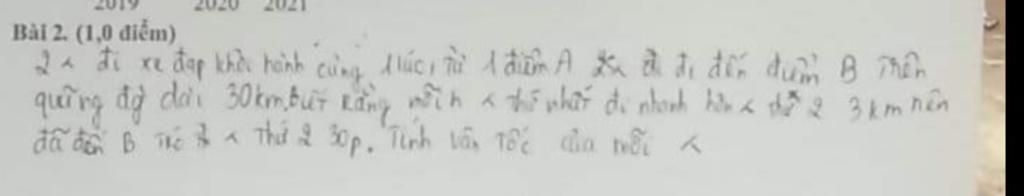 2019 2020 2021
Bài 2. (1,0 điểm)
2 < đi xe đạp khởi hành cùng 1 lúc, từ 1 điểm A đi đến điểm B trên
quãng đg dài 30km, biết rằng mỗi h < thứ nhất đi nhanh hơn < thứ 2 3km nên
đã đến B trc < thứ 2 30p. Tính vận tốc của mỗi <